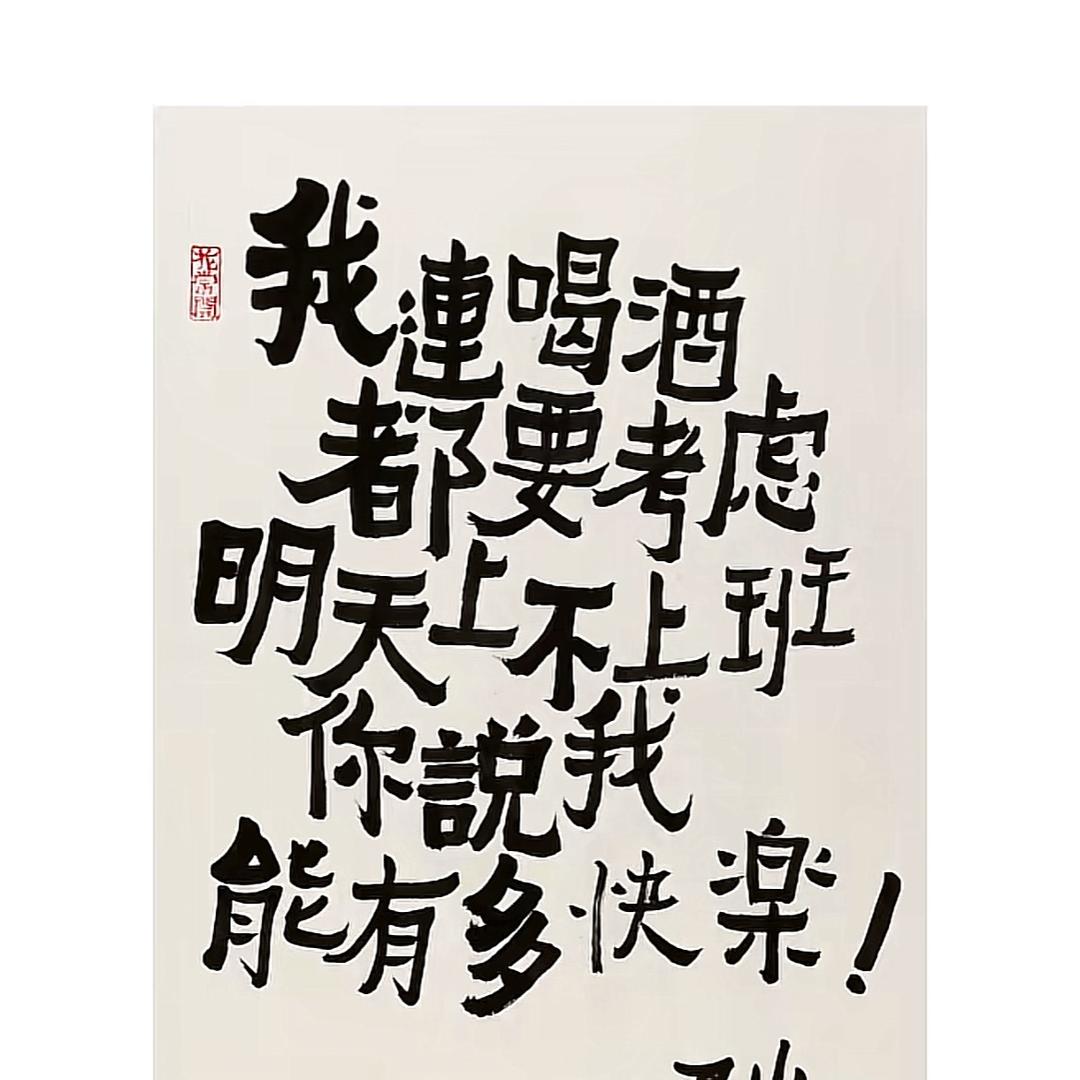 我連喝酒
都要考虑
明天上不上班
你説我
能有多快楽！